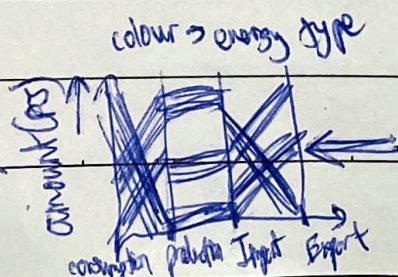 colour → energy type
amount (%)
consumption production Import Export